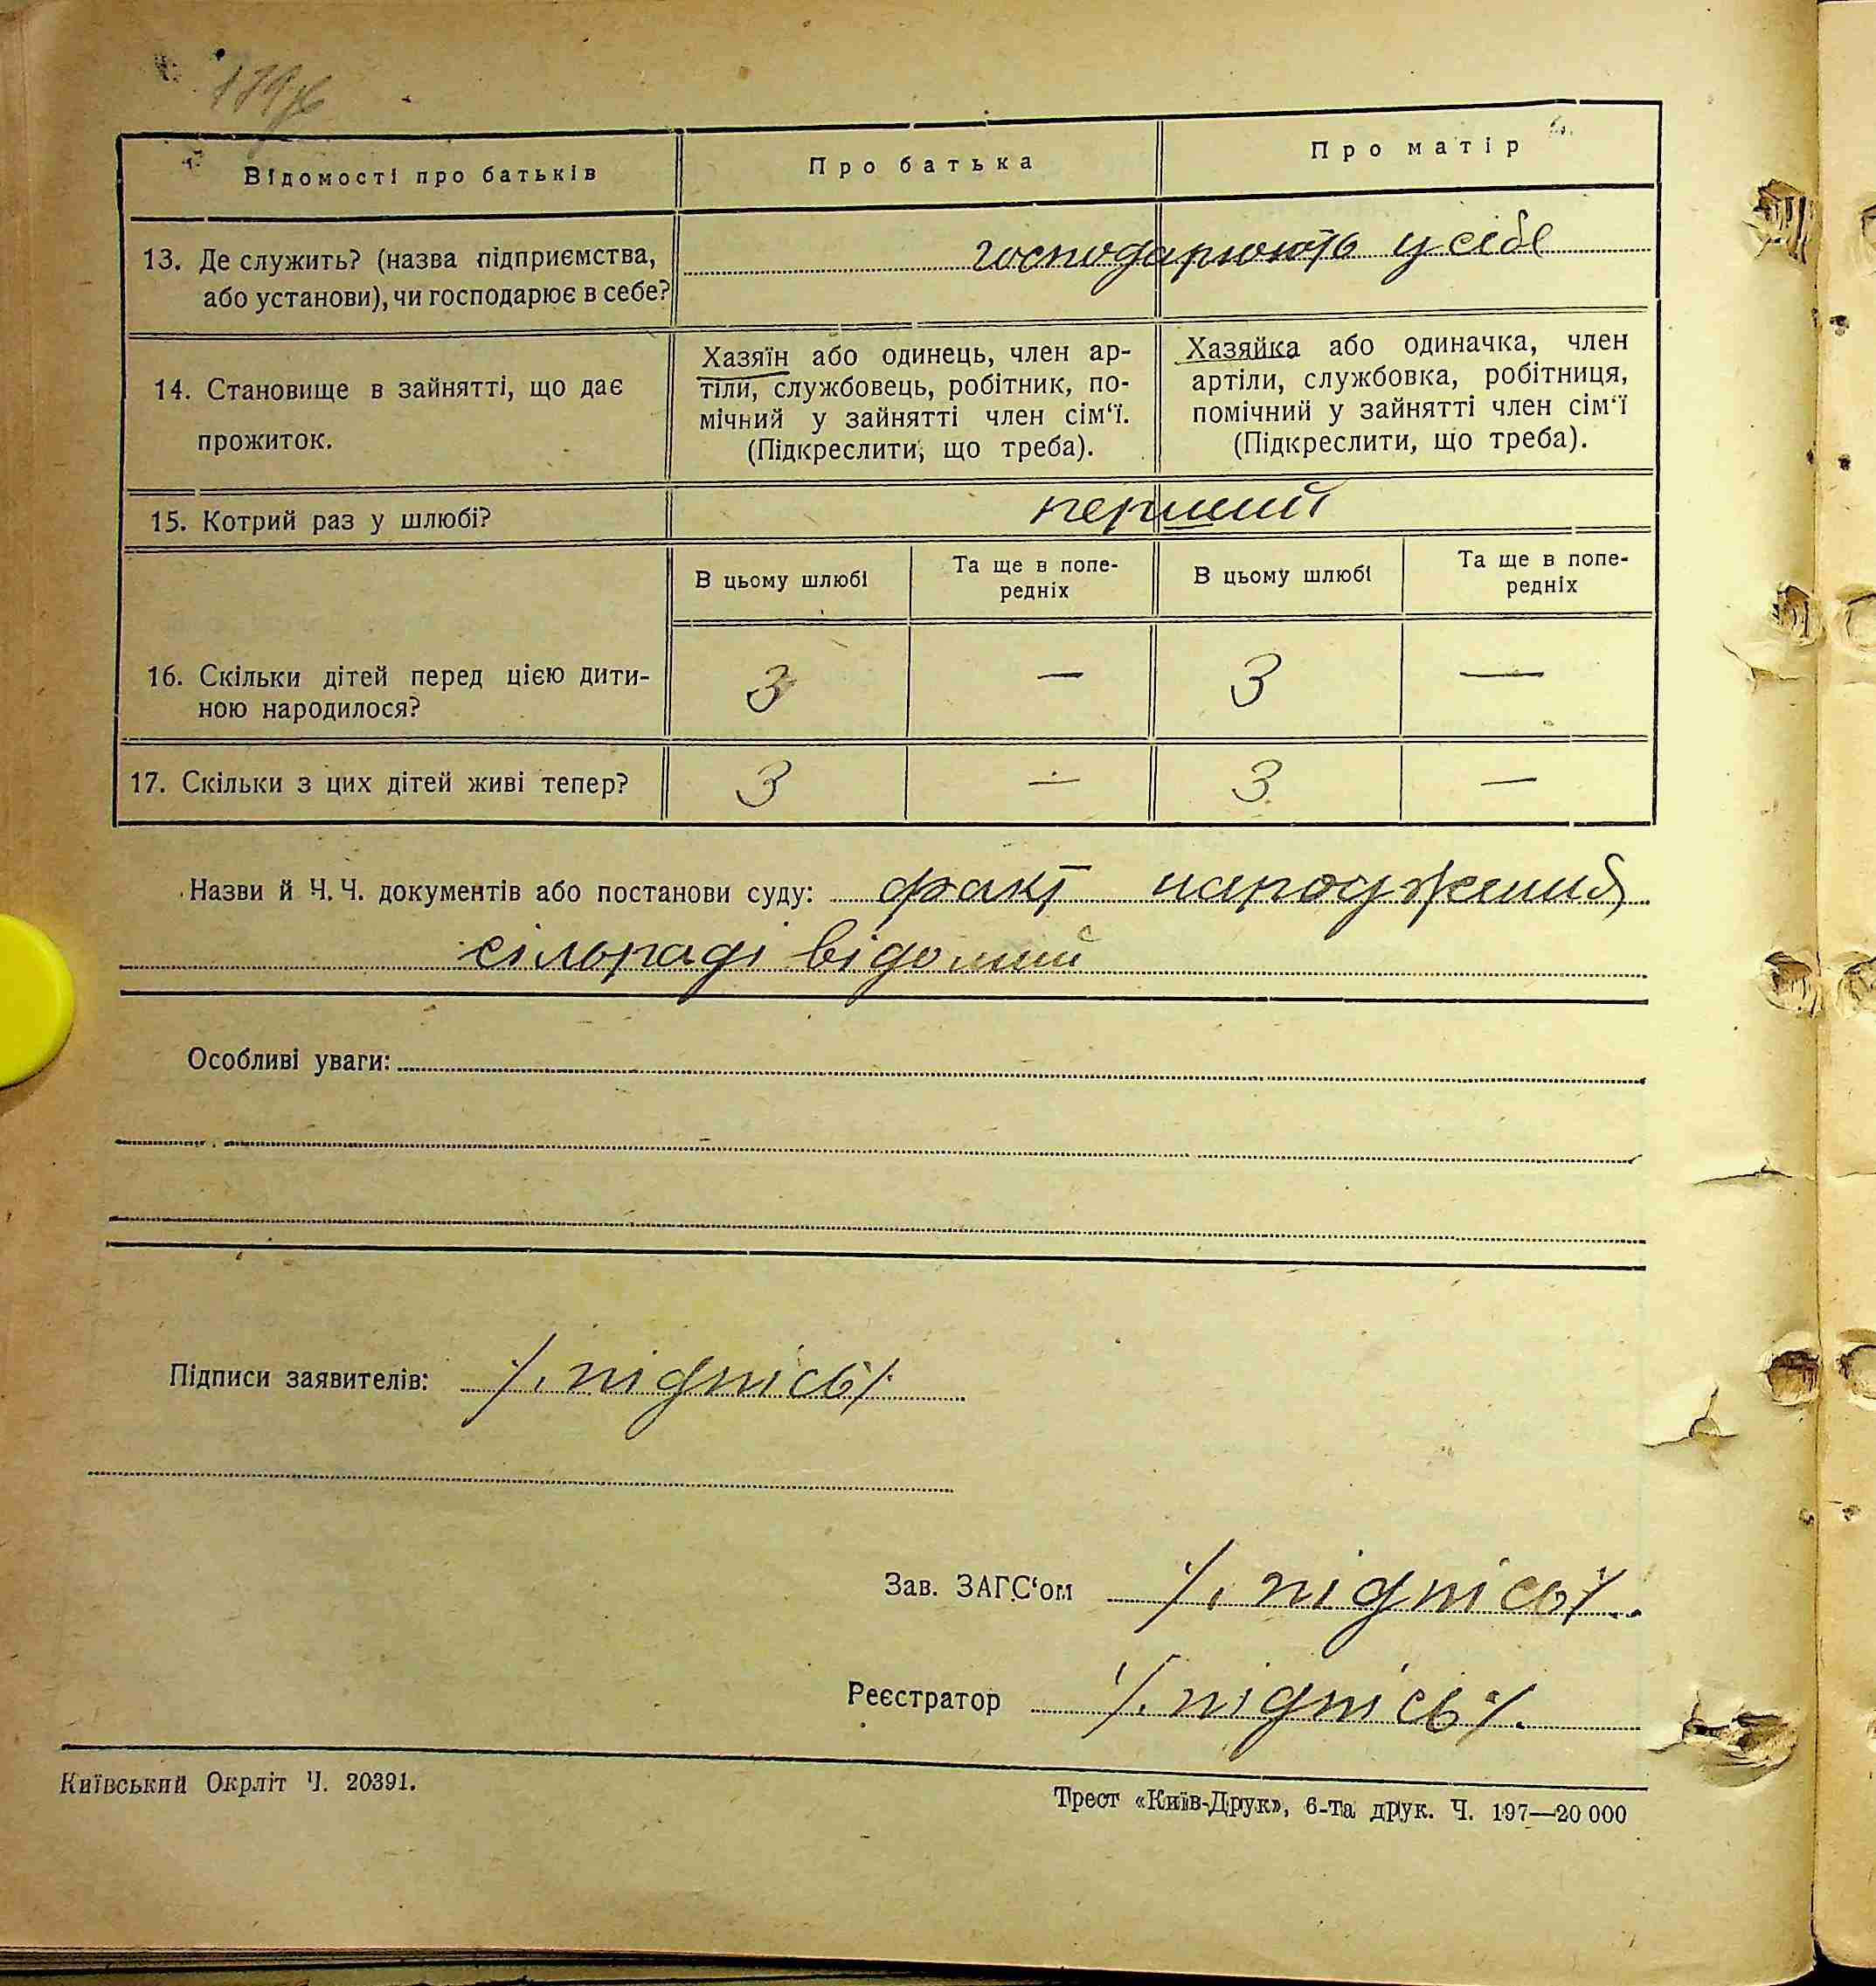 Відомості про батьків Про батька Про матір
13. Де служить? (назва підприємства, або установи), чи господарює в себе? господарюють у сібе
14. Становище в зайнятті, що дає прожиток.
Хазяїн або одинець, член ар-
тіли, службовець, робітник, по-
мічний у зайнятті член сім‘ї.
(Підкреслити, що треба).
Хазяйка або одиначка, член
артіли, службовка, робітниця,
помічний у зайнятті член сім‘ї
(Підкреслити, що треба).
15. Котрий раз у шлюбі? перший
В цьому шлюбі Та ще в попе-
редніх В цьому шлюбі Та ще в попе-
редніх
16. Скільки дітей перед цією дити-
ною народилося? 3 — 3 —
17. Скільки з цих дітей живі тепер? 3 — 3 —
Назви й Ч. Ч. документів або постанови суду: факт народження
сільраді відомий
Особливі уваги:
Підписи заявителів: /. підпісь/.
Зав. ЗАГС‘ом /. підпісь/.
Реєстратор /. підпісь/.
Київський Окрліт Ч. 20391.
Трест «Київ-Друк», 6-та друк. Ч. 197—20 000